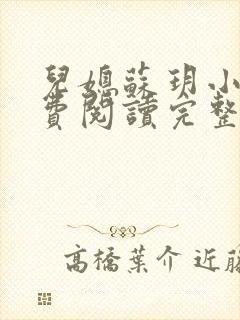 兒媳蘇玥小
費閱讀完整
高橋葉介 近藤